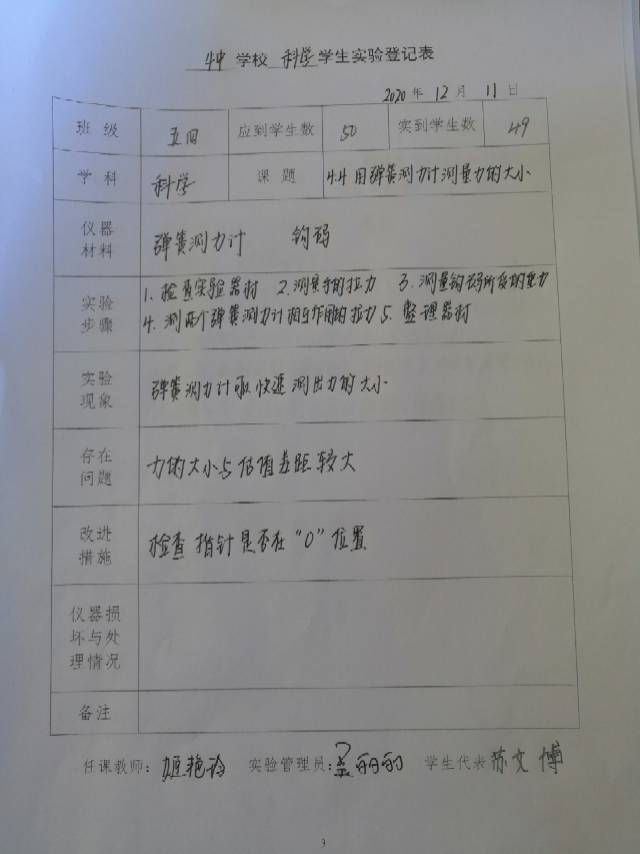 学校 科学 学生实验登记表
2020年 12月 11日
班级 五四 应到学生数 50 实到学生数 49
学科 科学 课题 4.4 用弹簧测力计测量力的大小
仪器
材料
弹簧测力计 钩码
实验
步骤
1. 检查实验器材 2. 测量的拉力 3. 测量钩码所受的重力
4. 测两个弹簧测力计相互作用的拉力 5. 整理器材
实验
现象
弹簧测力计可快速测出力的大小
存在
问题
力的大小与估值差距较大
改进
措施
检查指针是否在“0”位置
仪器损
坏与处
理情况
备注
任课教师: 姬艳玲 实验管理员: 丽丽 学生代表 苏文博
3